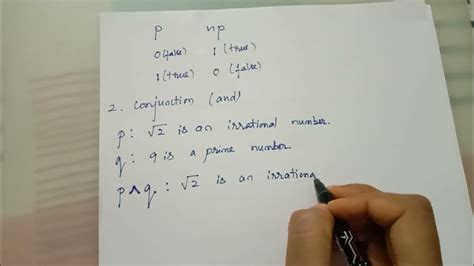 p np
0 (false) 1 (true)
1 (true) 0 (false)
2. Conjunction (and)
p : √2 is an irrational number.
q : 9 is a prime number.
p ∧ q : √2 is an irrationa